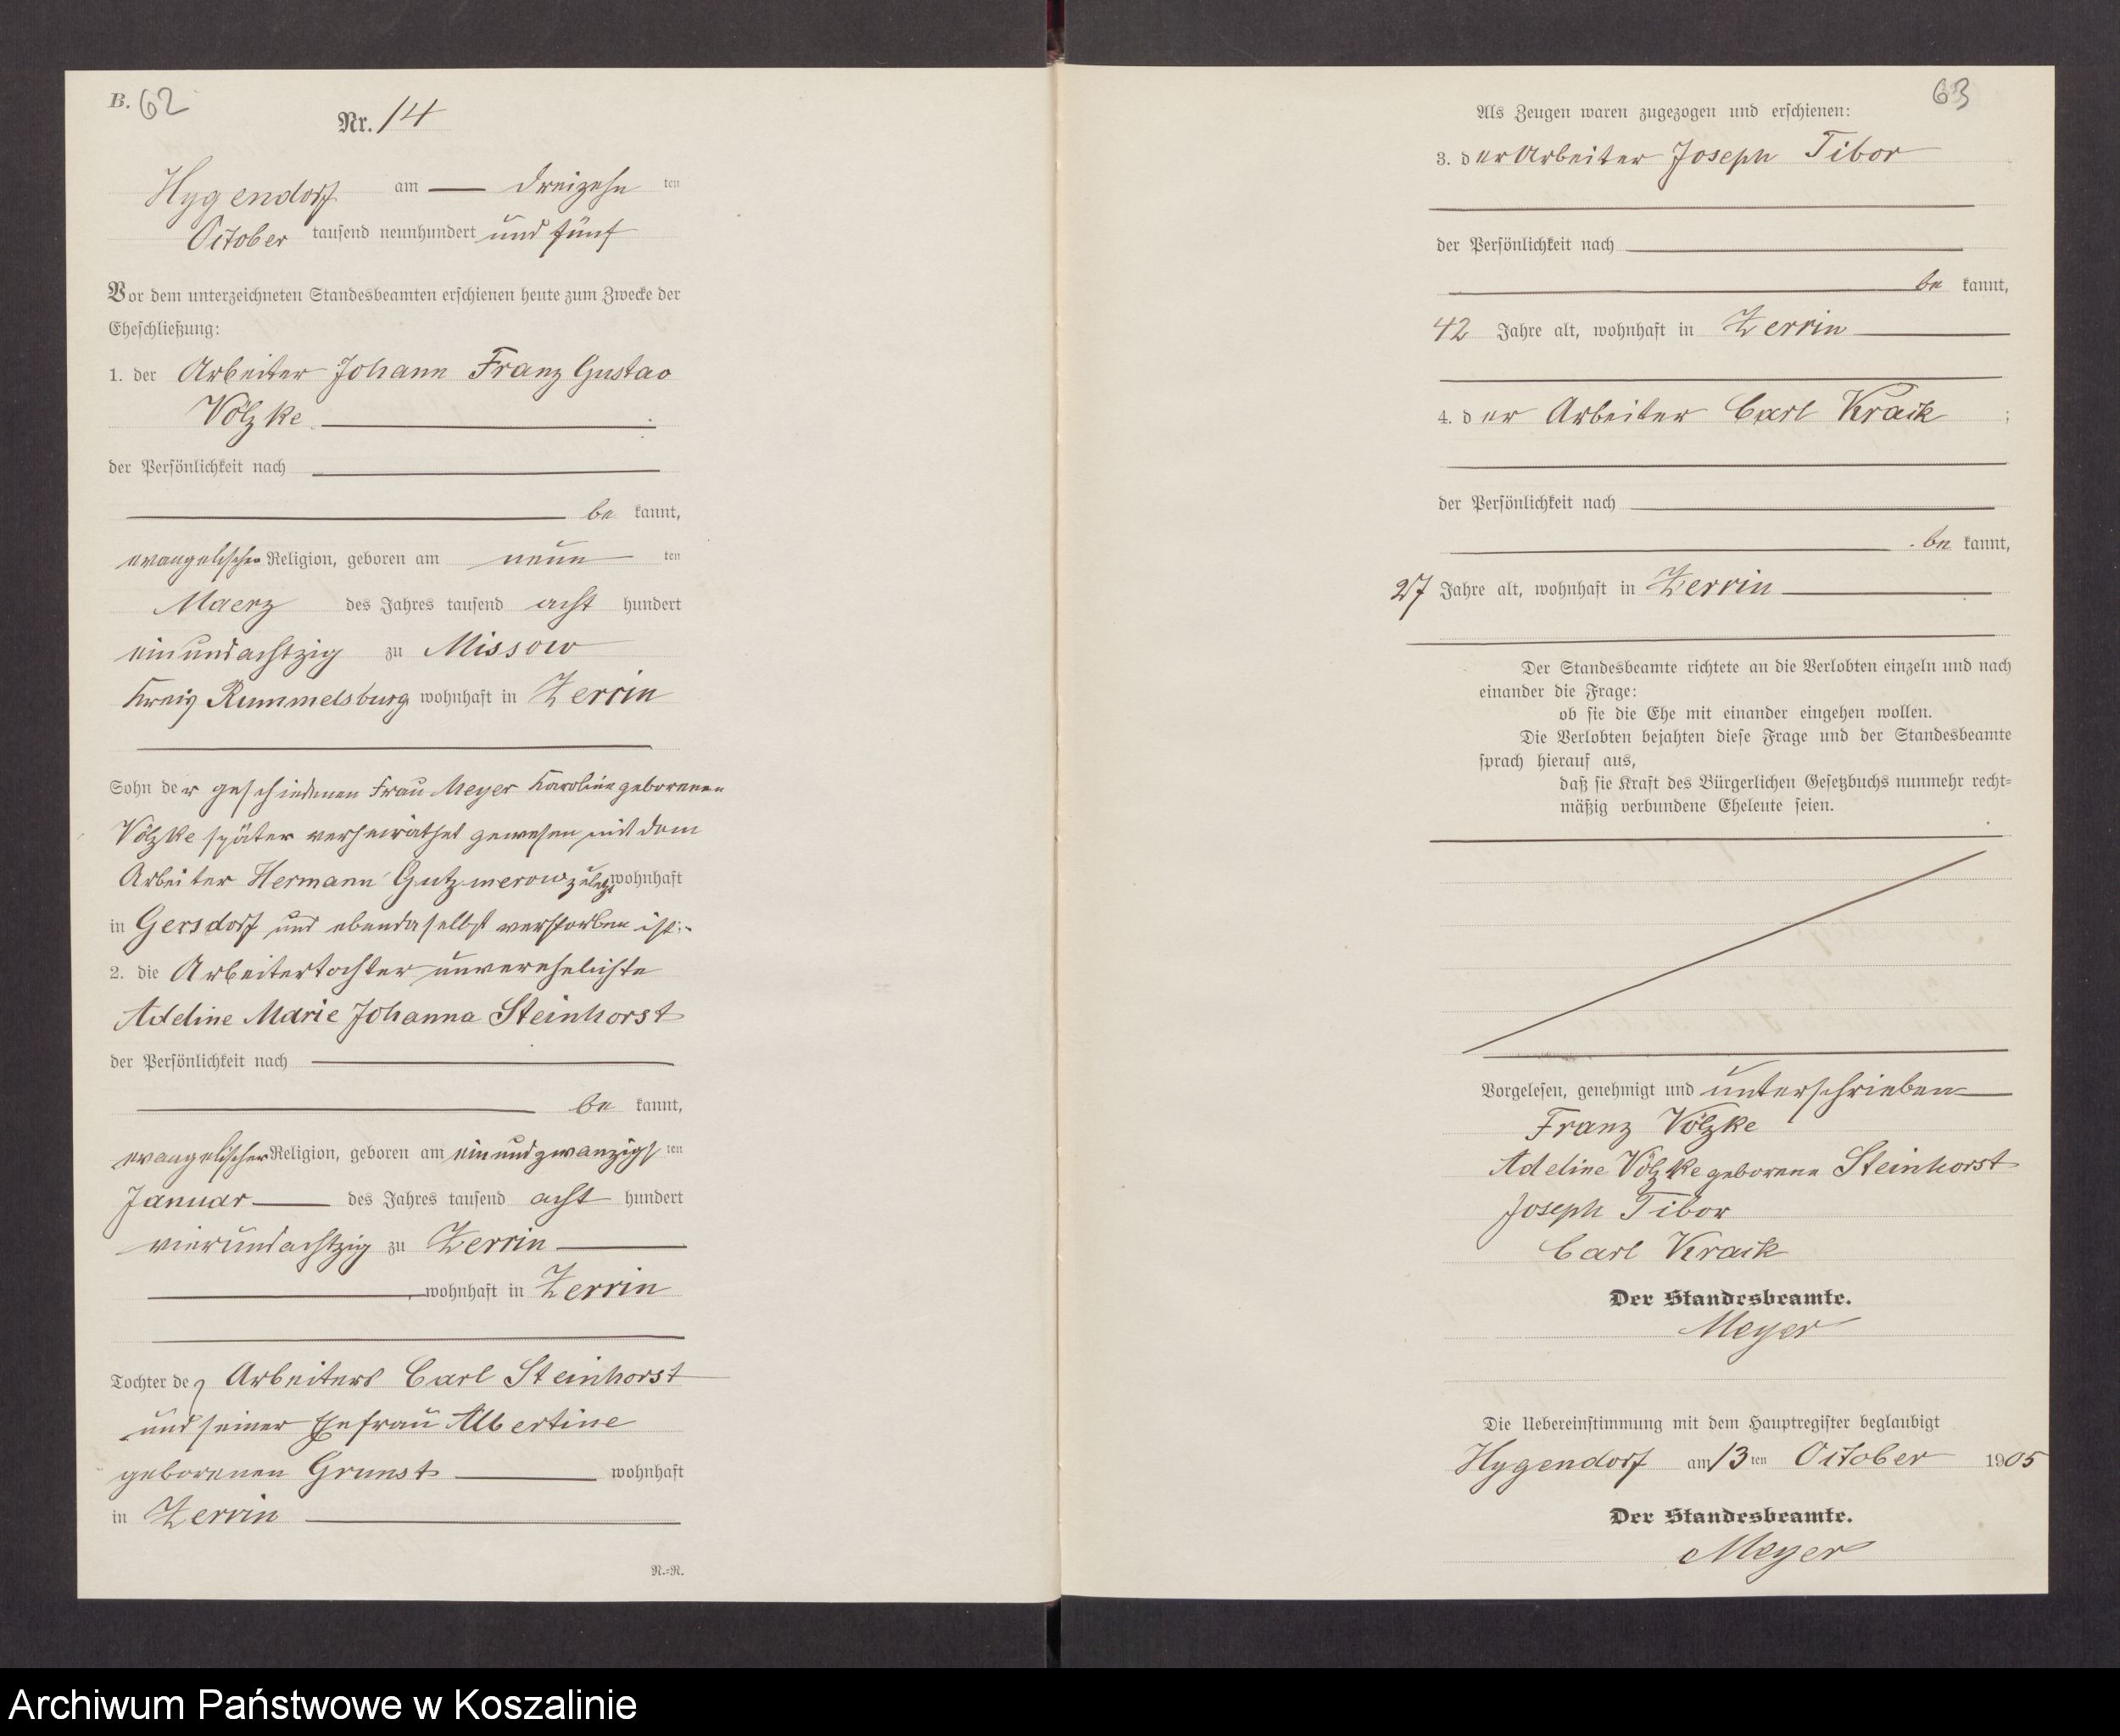 B. 62
Nr. 14
Hygendorf am dreizehn ten
October tausend neunhundert und fünf
Vor dem unterzeichneten Standesbeamten erschienen heute zum Zwecke der
Eheschließung:
1. der Arbeiter Johann Franz Gustav
Völzke
der Persönlichkeit nach
be kannt,
evangelischer Religion, geboren am neun ten
Maerz des Jahres tausend acht hundert
einundachtzig zu Missow
Kreis Rummelsburg wohnhaft in Zerrin
Sohn der geschiedenen Frau Meyer Karoline geborenen
Völzke später verheirathet gewesen mit dem
Arbeiter Hermann Gutzmerow zuletzt wohnhaft
in Gersdorf und ebendaselbst verstorben ist.
2. die Arbeitertochter unverehelichte
Adeline Marie Johanna Steinhorst
der Persönlichkeit nach
be kannt,
evangelischer Religion, geboren am einundzwanzigs ten
Januar des Jahres tausend acht hundert
vierundachtzig zu Zerrin
wohnhaft in Zerrin
Tochter des Arbeiters Carl Steinhorst
und seiner Ehefrau Albertine
geborenen Grunst wohnhaft
in Zerrin
N.=N.
63
Als Zeugen waren zugezogen und erschienen:
3. der Arbeiter Joseph Tibor
der Persönlichkeit nach
be kannt,
42 Jahre alt, wohnhaft in Zerrin
4. der Arbeiter Carl Krack ;
der Persönlichkeit nach
be kannt,
27 Jahre alt, wohnhaft in Zerrin
Der Standesbeamte richtete an die Verlobten einzeln und nach
einander die Frage:
ob sie die Ehe mit einander eingehen wollen.
Die Verlobten bejahten diese Frage und der Standesbeamte
sprach hierauf aus,
daß sie Kraft des Bürgerlichen Gesetzbuchs nunmehr recht=
mäßig verbundene Eheleute seien.
Vorgelesen, genehmigt und unterschrieben
Franz Völzke
Adeline Völzke geborene Steinhorst
Joseph Tibor
Carl Krack
Der Standesbeamte.
Meyer
Die Uebereinstimmung mit dem Hauptregister beglaubigt
Hygendorf am 13 ten October 1905
Der Standesbeamte.
Meyer
Archiwum Państwowe w Koszalinie